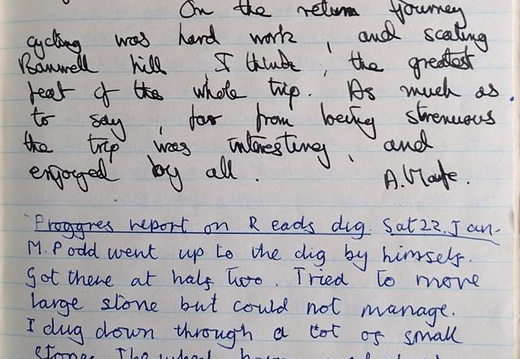 On the return journey
cycling was hard work , and scaling
Banwell hill , I think , the greatest
feat of the whole trip. As much as
to say , far from being strenuous
the trip was interesting , and
enjoyed by all .
A.
Proggres report on Reads dig. Sat 22. Jan.
M. Podd went up to the dig by himself.
Got there at half two. Tried to move
large stone but could not manage.
I dug down through a lot of small
stone. The wheel